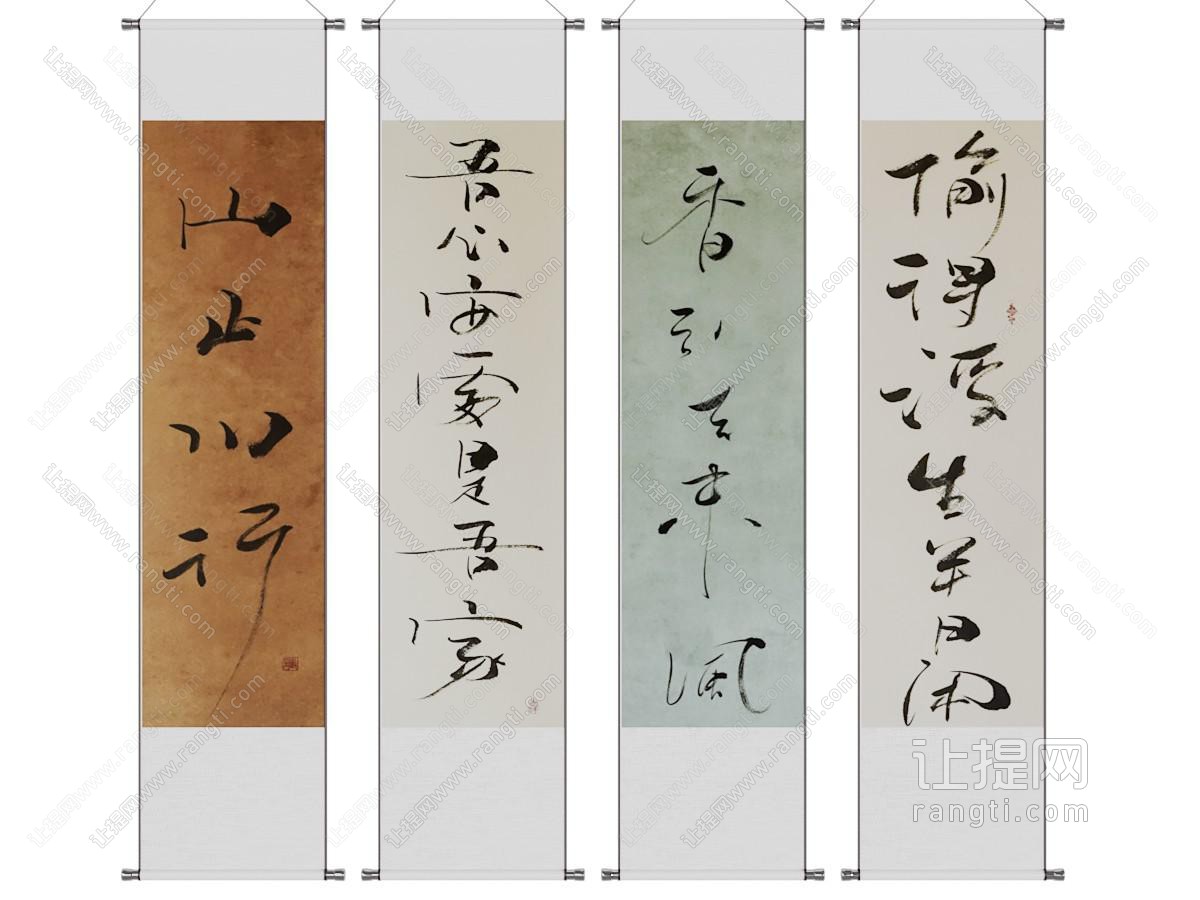 山止川行
吾心安處是吾家
香引去來風
偷得浮生半日閑
让提网
rangti.com
让提网www.rangti.com